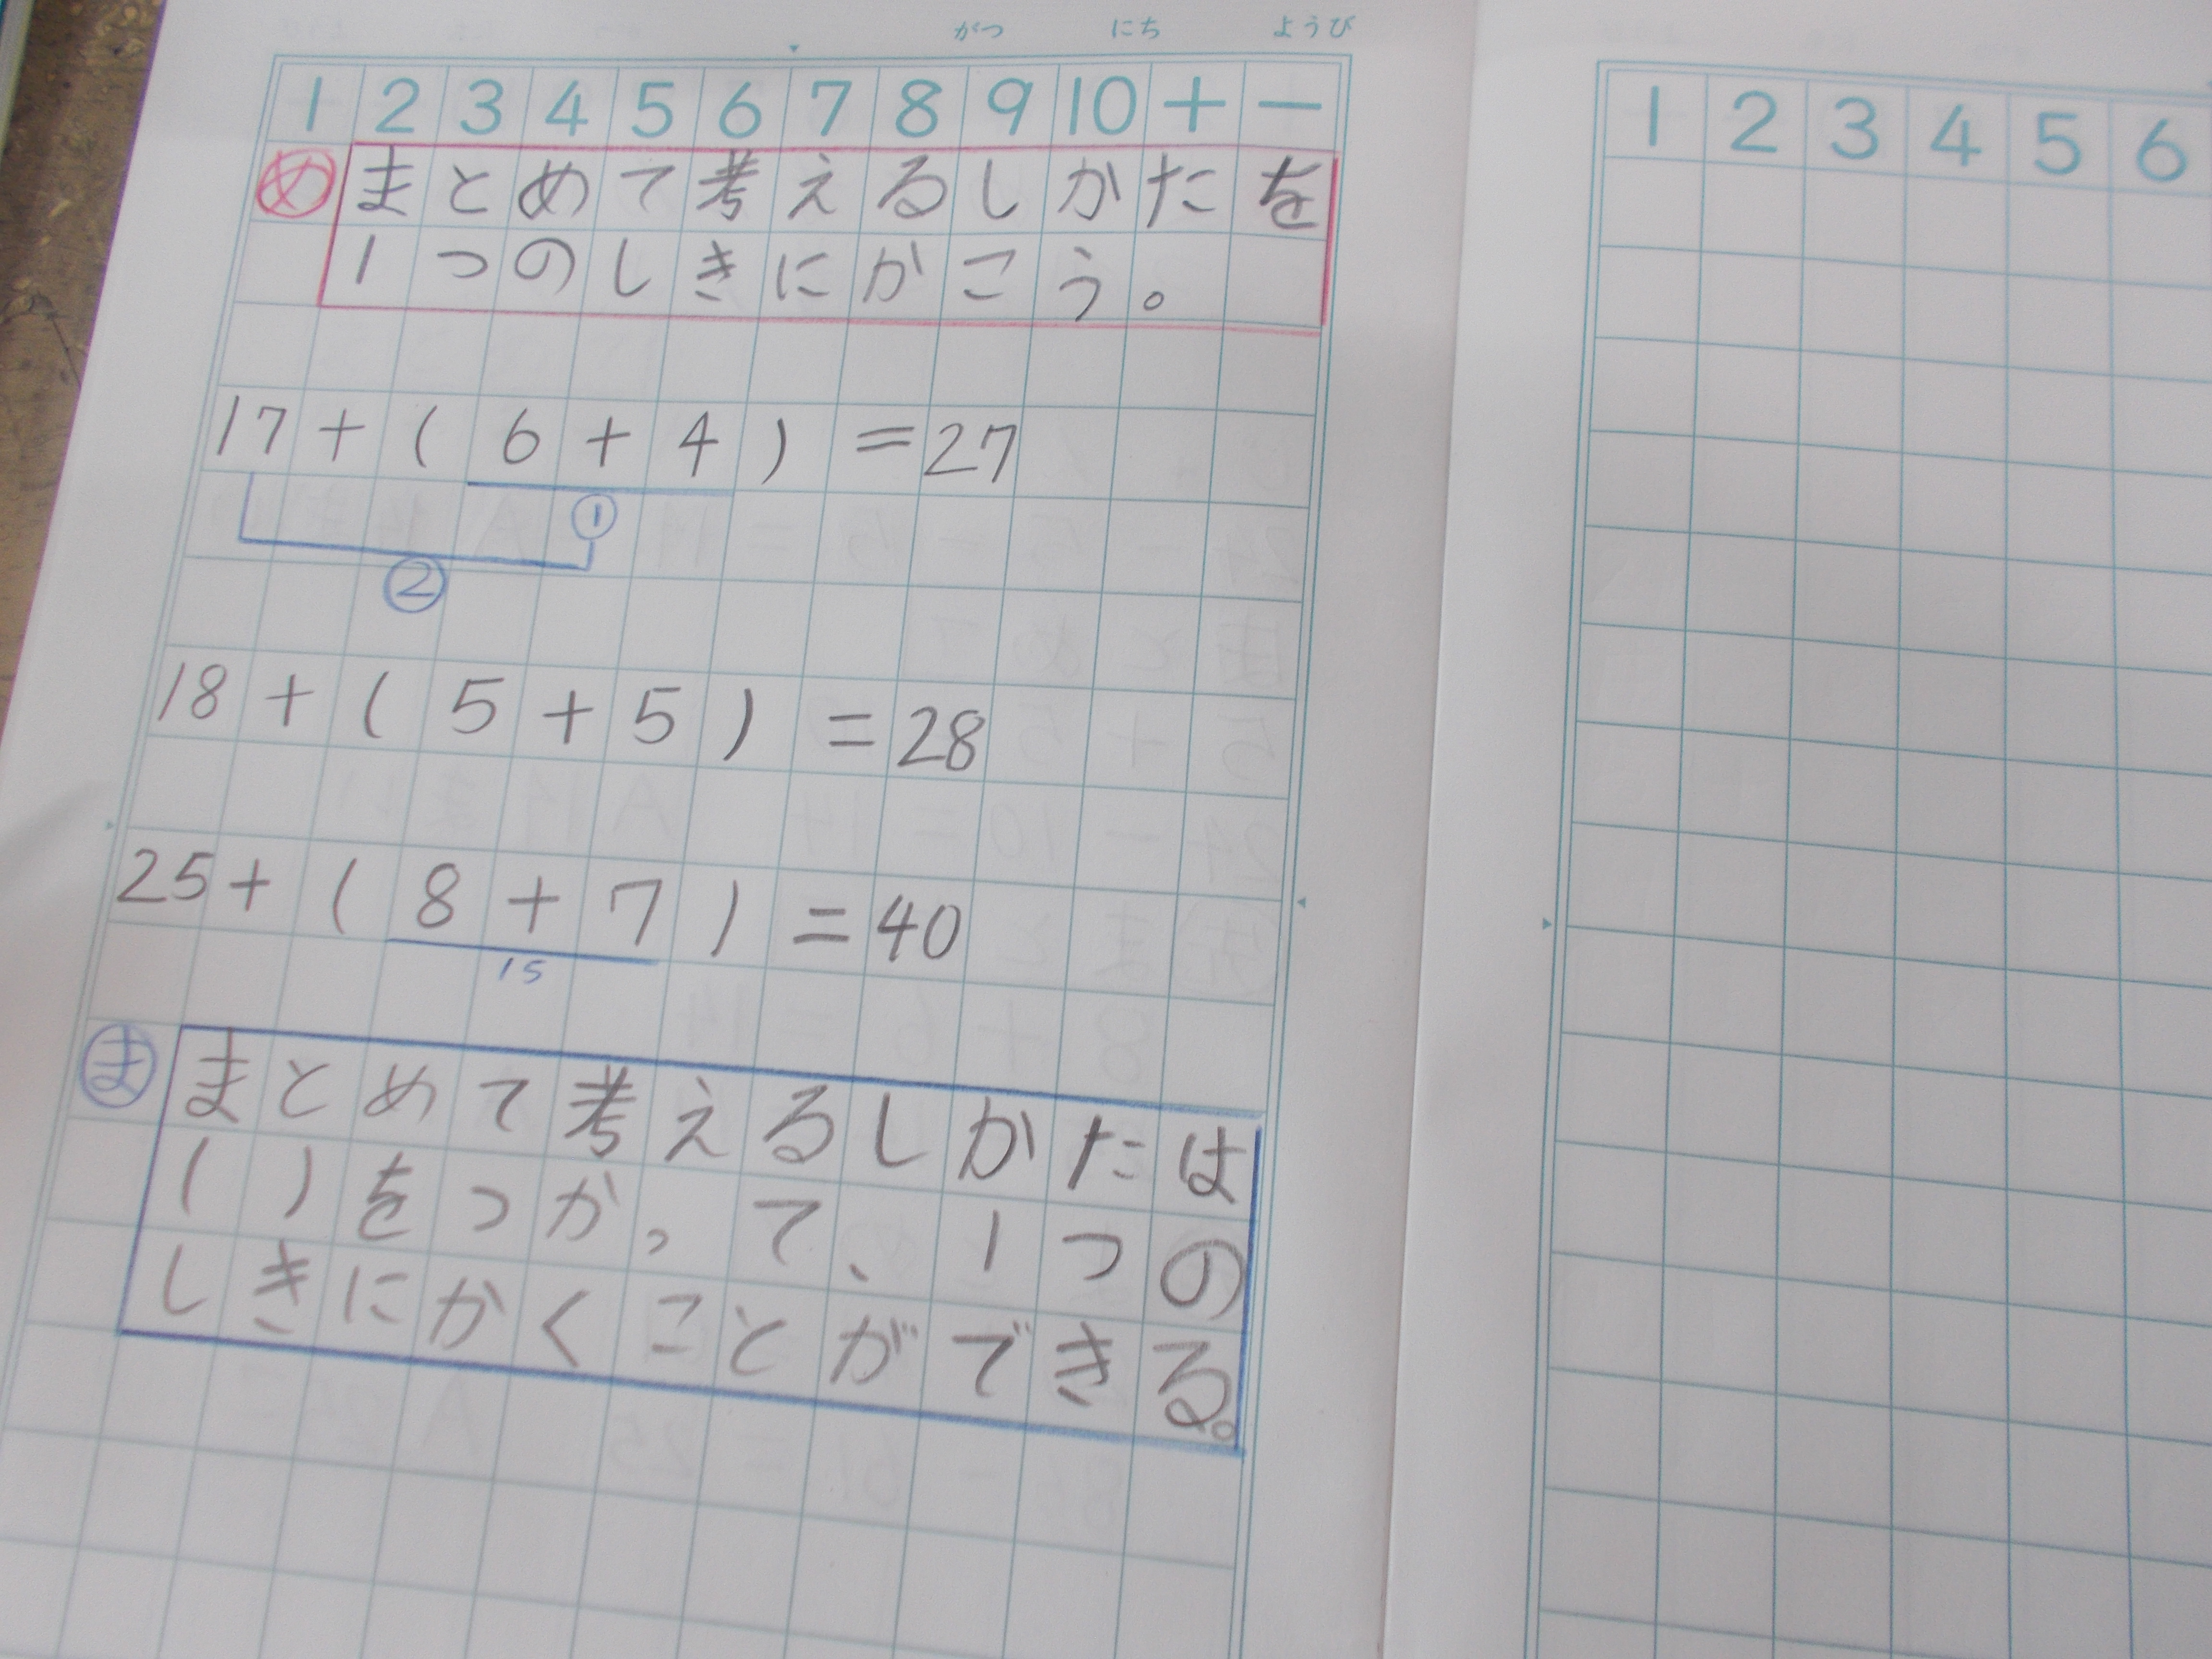 がつ にち ようび
1 2 3 4 5 6 7 8 9 10 + −
め まとめて考えるしかたを
1つのしきにかこう。
17+(6+4)=27
①
②
18+(5+5)=28
25+(8+7)=40
15
ま まとめて考えるしかたは
()をつかって、1つの
しきにかくことができる。
1 2 3 4 5 6